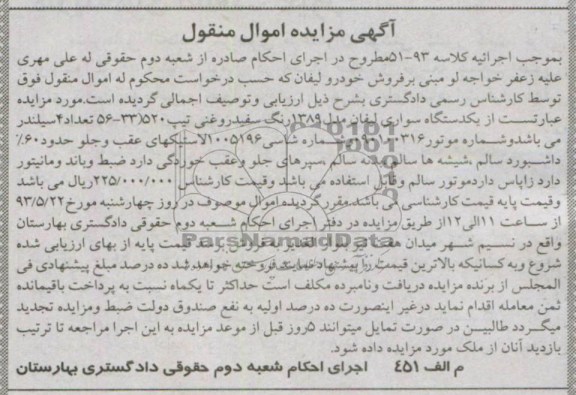 آگهی مزایده اموال منقول
بموجب اجرائیه کلاسه ۹۳-۵۱مطروح در اجرای احکام صادره از شعبه دوم حقوقی له علی مهری
علیه زعفر خواجه لو مبنی برفروش خودرو لیفان که حسب درخواست محکوم له اموال منقول فوق
توسط کارشناس رسمی دادگستری بشرح ذیل ارزیابی وتوصیف اجمالی گردیده است.مورد مزایده
عبارتست از یکدستگاه سواری لیفان مدل ۱۳۸۹رنگ سفیدروغنی تیپ۵۲۰(۳۳-۵۶ تعداد۴سیلندر
می باشدوشماره موتور۳۱۶ شماره شاسی۱۰۰۵۱۹۶لاستیکهای عقب وجلو حدود۶۰٪
داشبورد سالم ،شیشه ها سالم سالم ،سپرهای جلو وعقب خوردگی دارد ضبط وباند ومانیتور
دارد زاپاس داردموتور سالم وقابل استفاده می باشد وقیمت کارشناس ۲۲۵/۰۰۰/۰۰۰ریال می باشد
وقیمت پایه قیمت کارشناسی می باشد.مقررگردیده اموال موصوف در روز چهارشنبه مورخ۹۳/۵/۲۲
از ساعت ۱۱الی۱۲از طریق مزایده در دفتر اجرای احکام شعبه دوم حقوقی دادگستری بهارستان
واقع در نسیم شهر میدان قیمت پایه از بهای ارزیابی شده
شروع وبه کسانیکه بالاترین قیمت را پیشنهاد نمایند فروخته خواهد شد ده درصد مبلغ پیشنهادی فی
المجلس از برنده مزایده دریافت ونامبرده مکلف است حداکثر تا یکماه نسبت به پرداخت باقیمانده
ثمن معامله اقدام نماید درغیر اینصورت ده درصد اولیه به نفع صندوق دولت ضبط ومزایده تجدید
میگردد طالبین در صورت تمایل میتوانند ۵روز قبل از موعد مزایده به این اجرا مراجعه تا ترتیب
بازدید آنان از ملک مورد مزایده داده شود.
م الف ۴۵۱ اجرای احکام شعبه دوم حقوقی دادگستری بهارستان
ParsNamadData